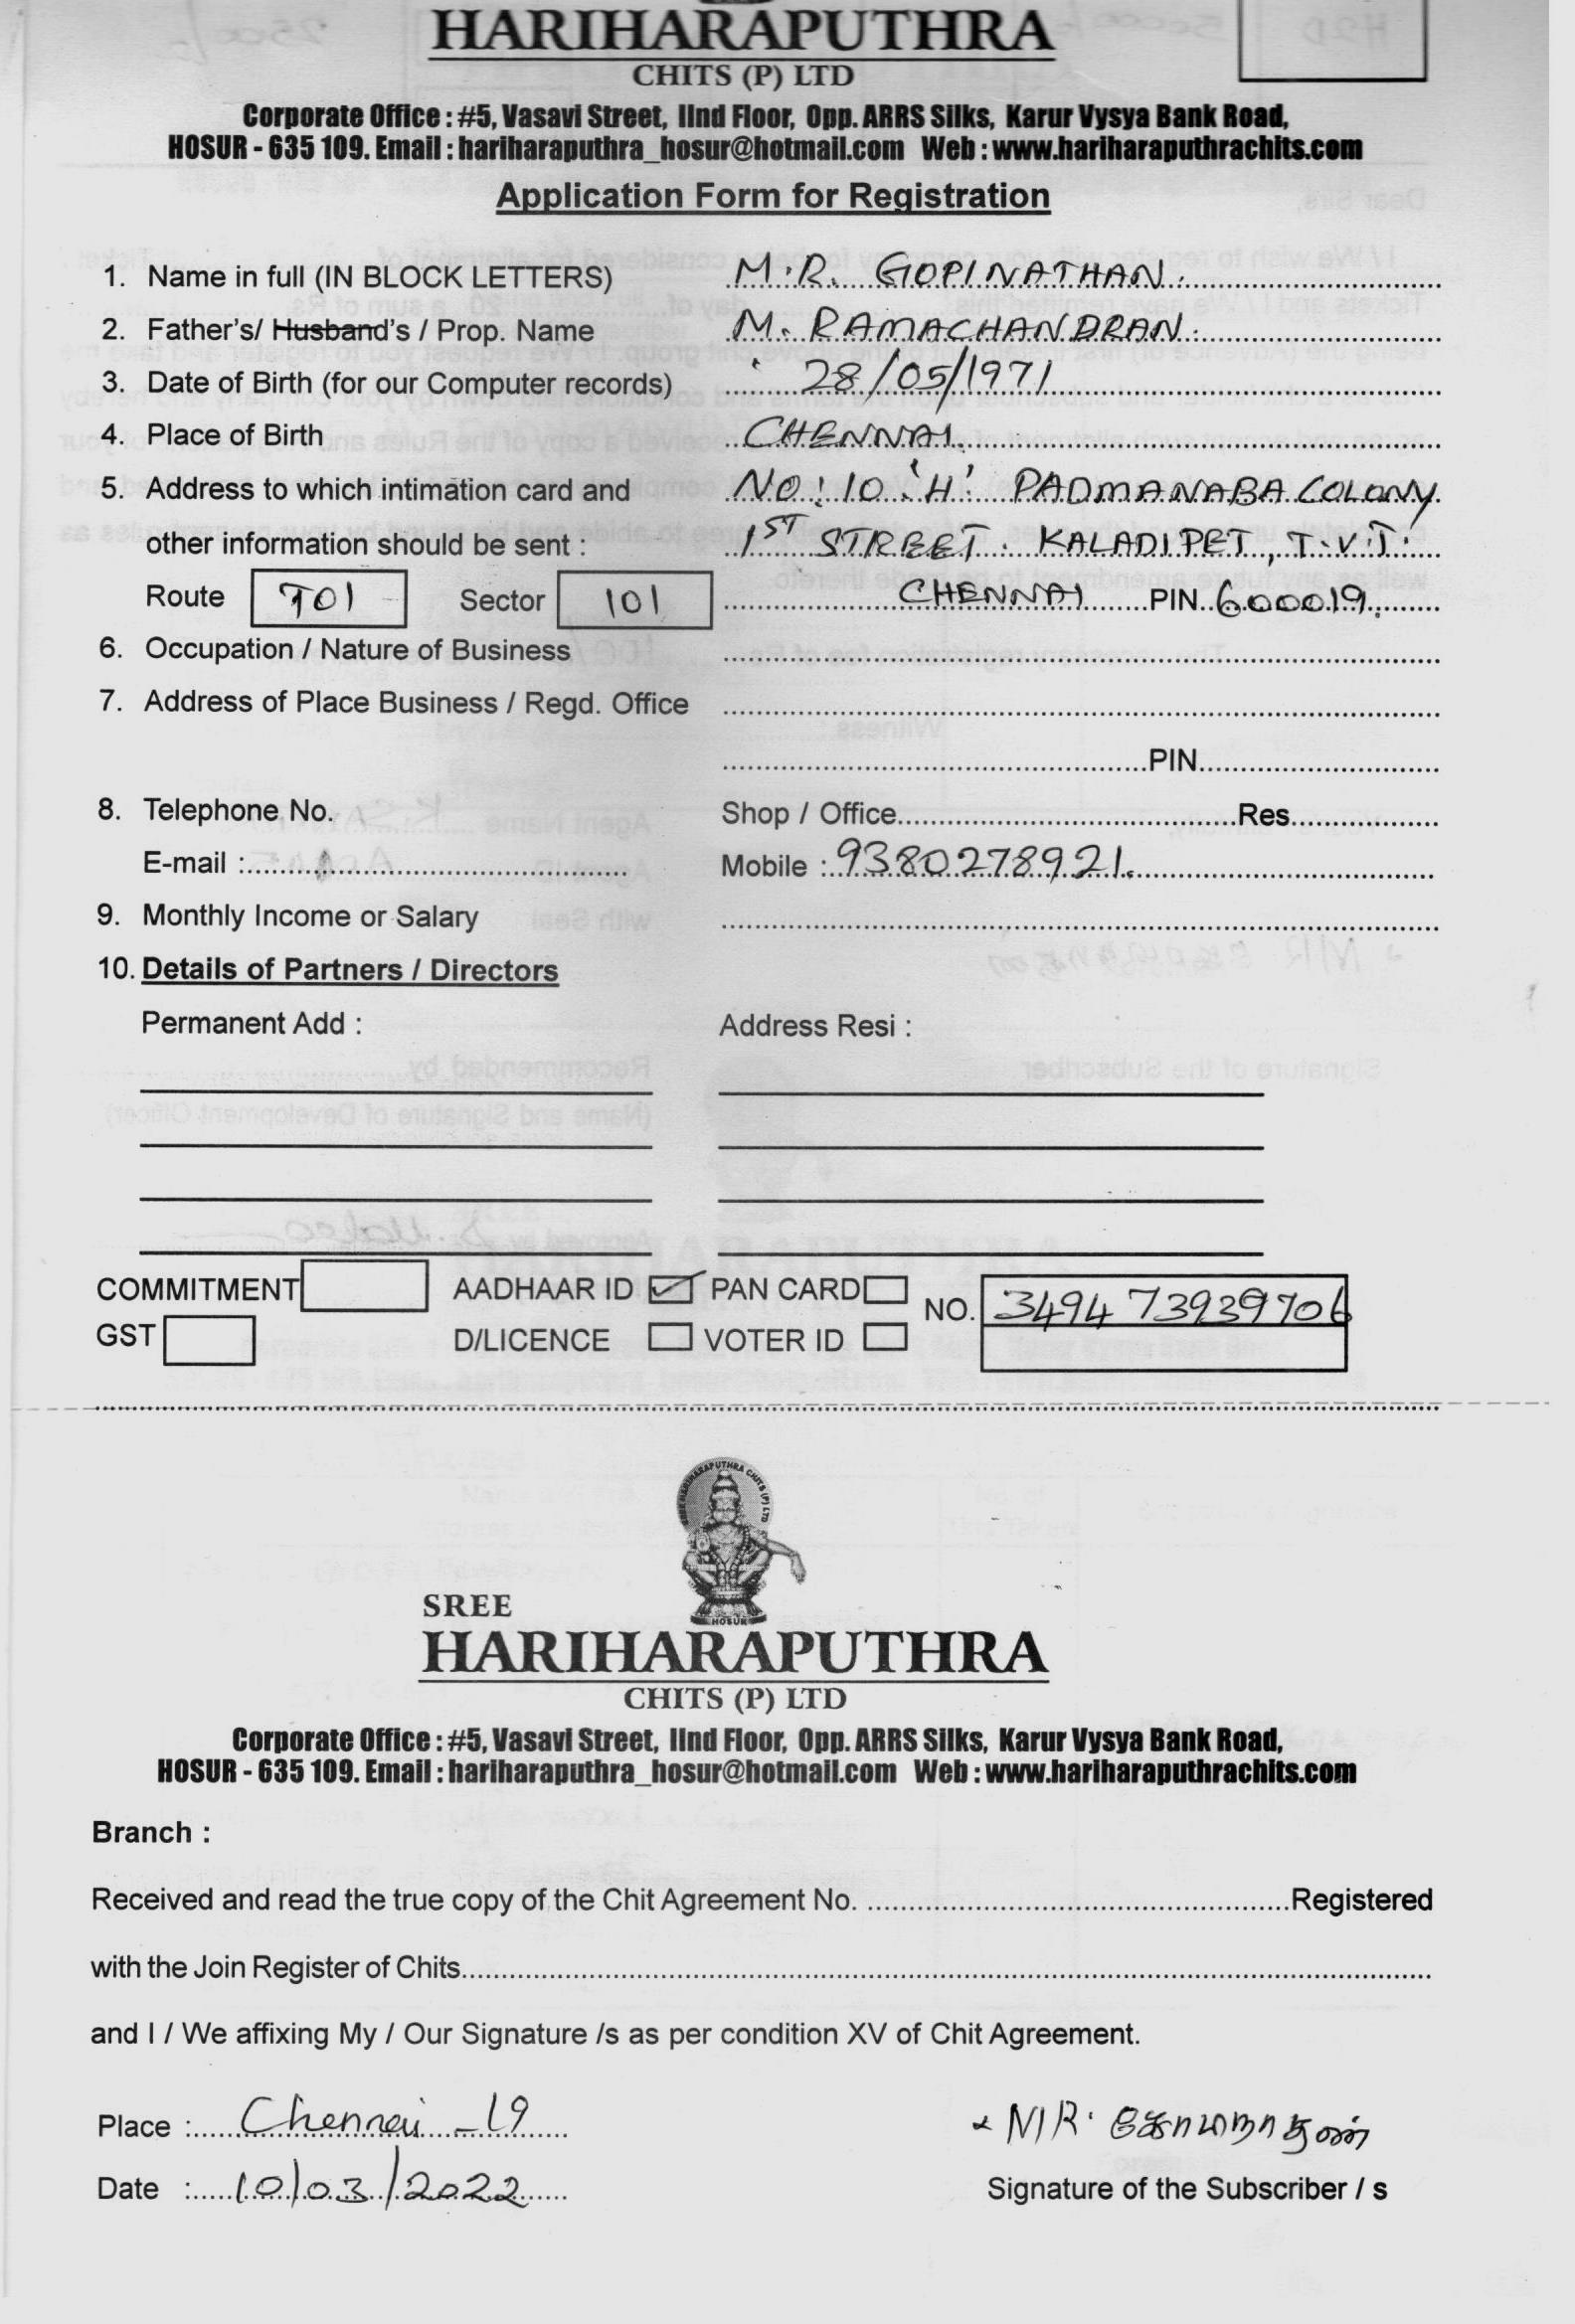 HARIHARAPUTHRA
CHITS (P) LTD
Corporate Office : #5, Vasavi Street, IInd Floor, Opp. ARRS Silks, Karur Vysya Bank Road,
HOSUR - 635 109. Email : hariharaputhra_hosur@hotmail.com Web : www.hariharaputhrachits.com
Application Form for Registration
1. Name in full (IN BLOCK LETTERS) M.R. GOPINATHAN.
2. Father's/ Husband's / Prop. Name M. RAMACHANDRAN.
3. Date of Birth (for our Computer records) 28/05/1971
4. Place of Birth CHENNAI.
5. Address to which intimation card and NO: 10 'H' PADMANABA COLONY
other information should be sent : 1ST STREET. KALADIPET, T.V.T.
Route T01 Sector 101 CHENNAI PIN 600019.
6. Occupation / Nature of Business
7. Address of Place Business / Regd. Office
PIN
8. Telephone No. Shop / Office Res
E-mail : Mobile : 9380278921.
9. Monthly Income or Salary
10. Details of Partners / Directors
Permanent Add : Address Resi :
COMMITMENT AADHAAR ID PAN CARD NO. 3494 73939706
GST D/LICENCE VOTER ID
SREE HARIHARAPUTHRA CHITS (P) LTD
HOSUR
SREE
HARIHARAPUTHRA
CHITS (P) LTD
Corporate Office : #5, Vasavi Street, IInd Floor, Opp. ARRS Silks, Karur Vysya Bank Road,
HOSUR - 635 109. Email : hariharaputhra_hosur@hotmail.com Web : www.hariharaputhrachits.com
Branch :
Received and read the true copy of the Chit Agreement No. Registered
with the Join Register of Chits
and I / We affixing My / Our Signature /s as per condition XV of Chit Agreement.
Place : Chennai - 19 M.R. கோபிநாதன்
Date : 10/03/2022 Signature of the Subscriber / s